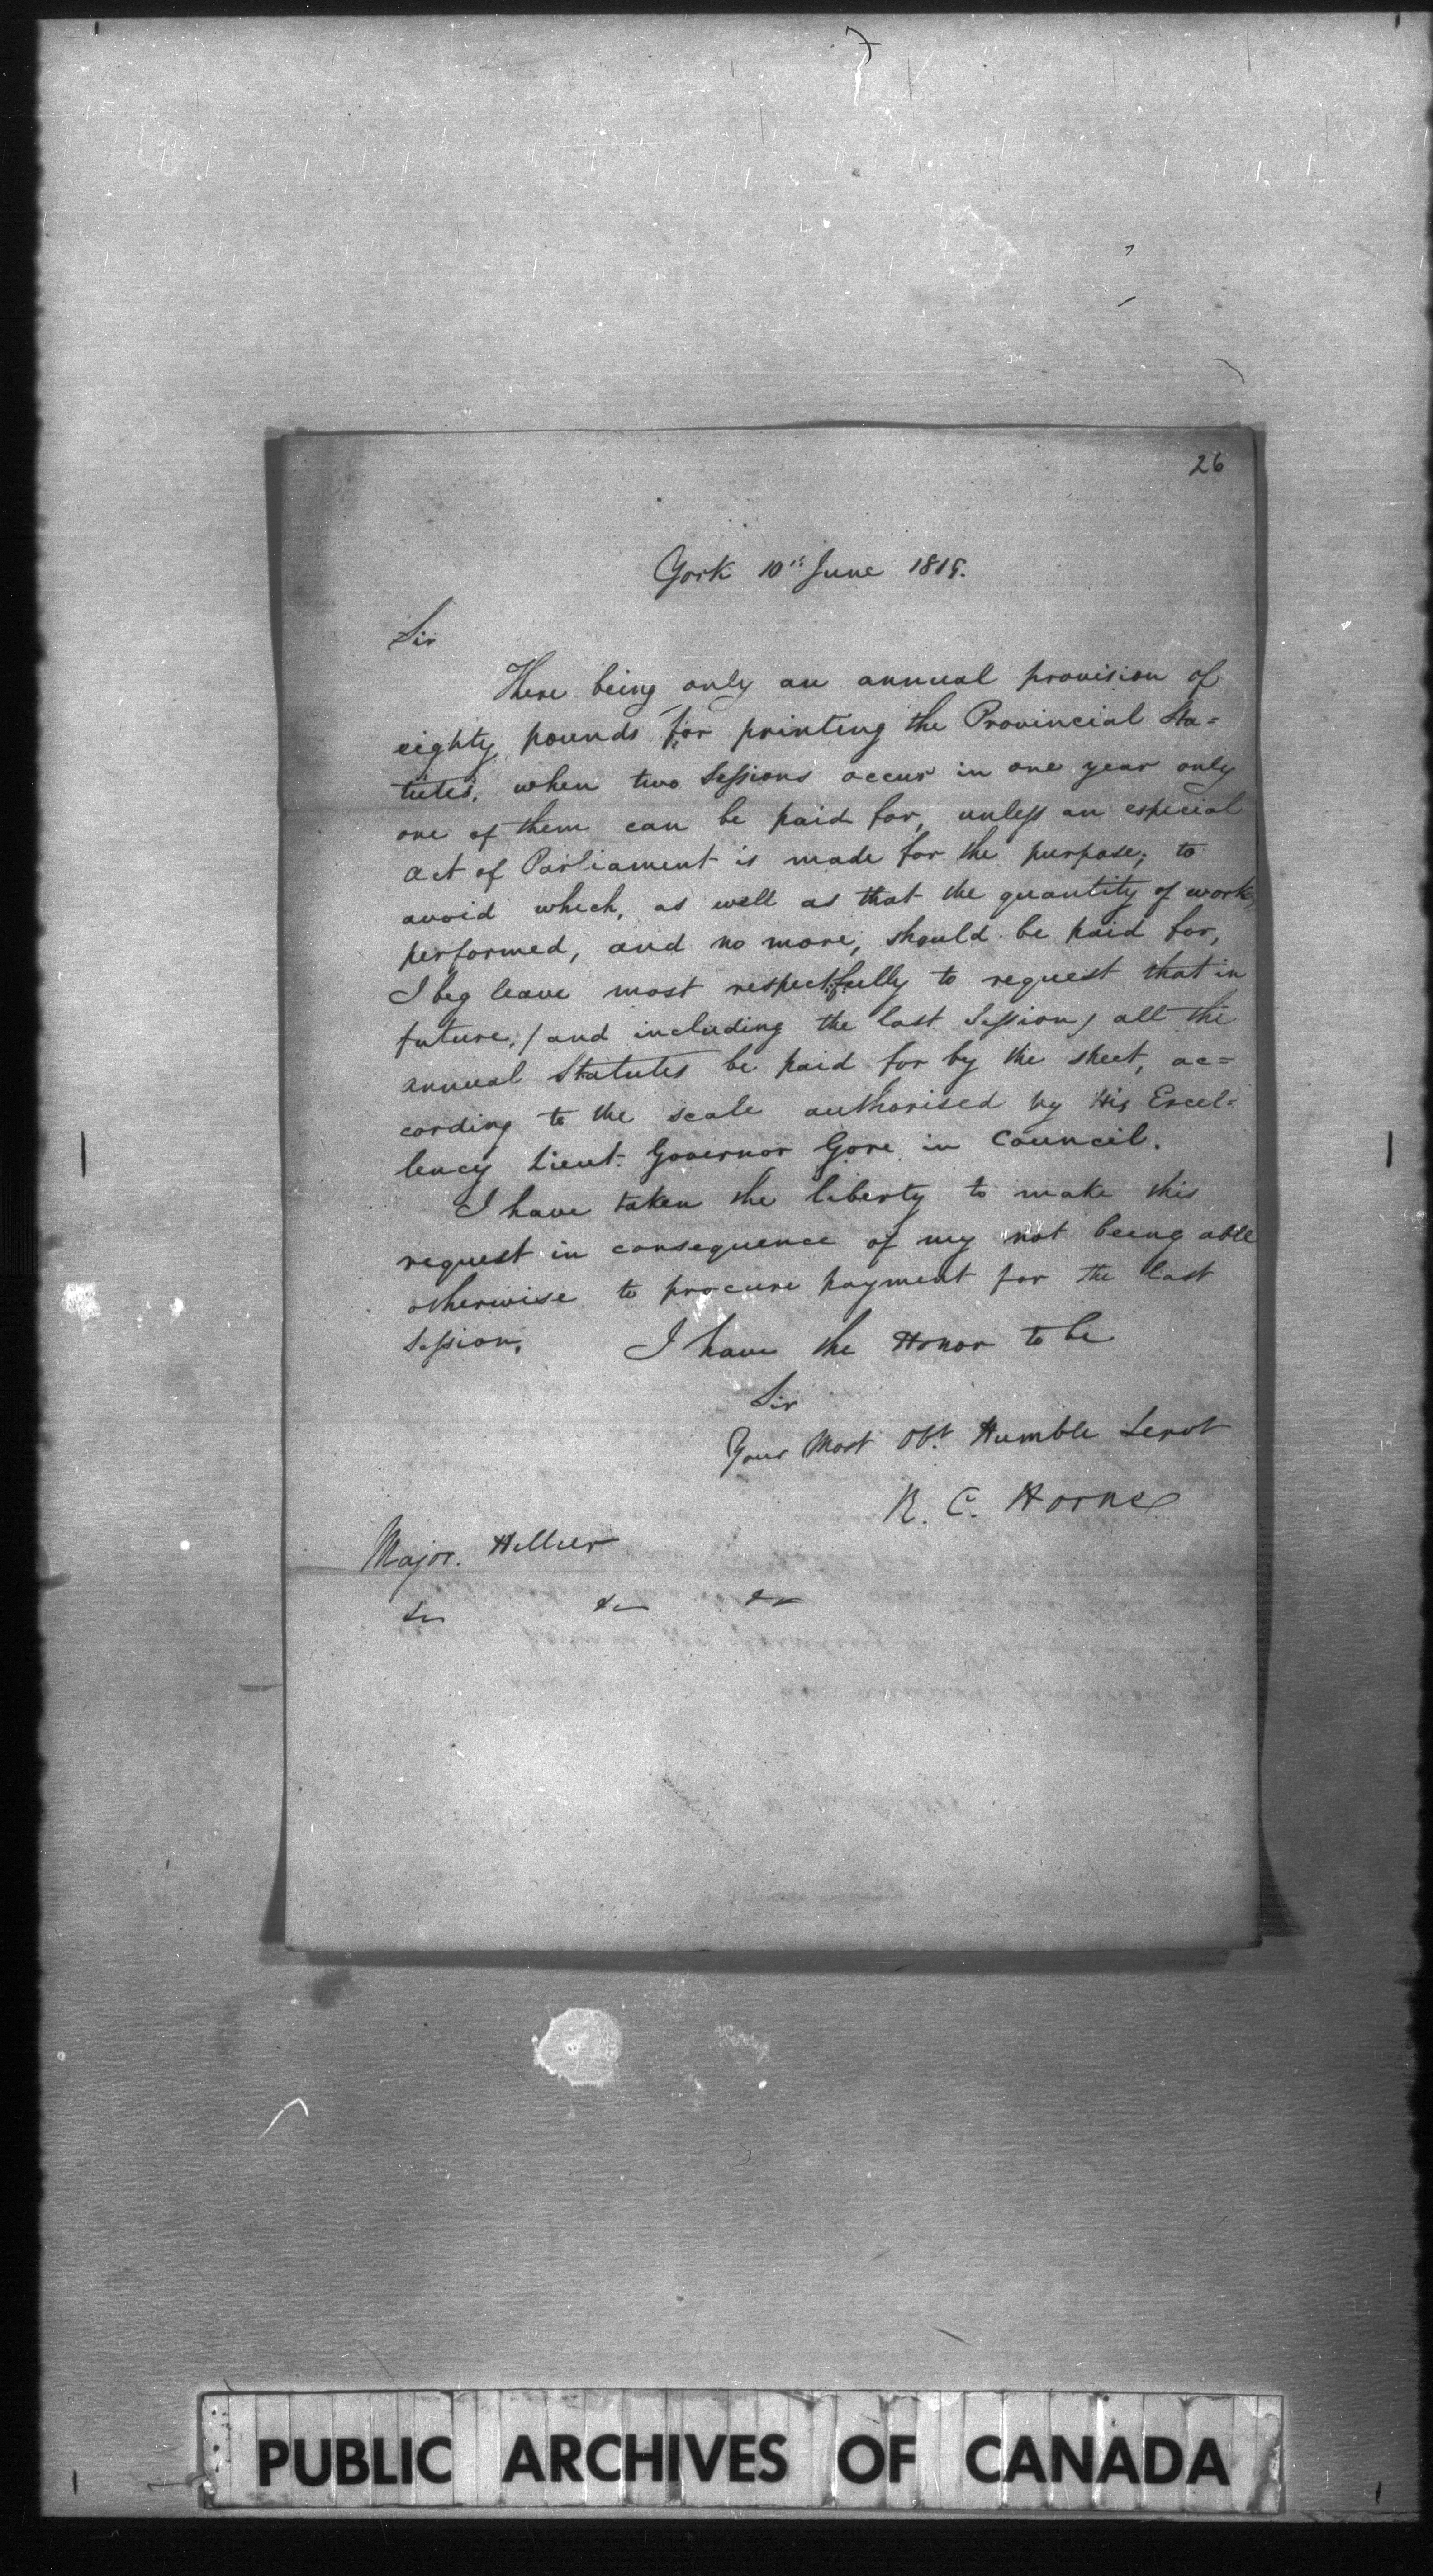 26
York 10th June 1819.
Sir
There being only an annual provision of
eighty pounds for printing the Provincial Sta=
tutes, when two Sessions occur in one year only
one of them can be paid for, unless an especial
act of Parliament is made for the purpose; to
avoid which, as well as that the quantity of work,
performed, and no more, should be paid for,
I beg leave most respectfully to request that in
future, / and including the last Session / all the
annual Statutes be paid for by the sheet, ac=
cording to the scale authorised by His Excel=
lency Lieut. Governor Gore in Council.
I have taken the liberty to make this
request in consequence of my not being able
otherwise to procure payment for the last
Session. I have the Honor to be
Sir
Your Most Obt. Humble Servt
R. C. Horne
Major. Hillier
&c &c &c
PUBLIC ARCHIVES OF CANADA